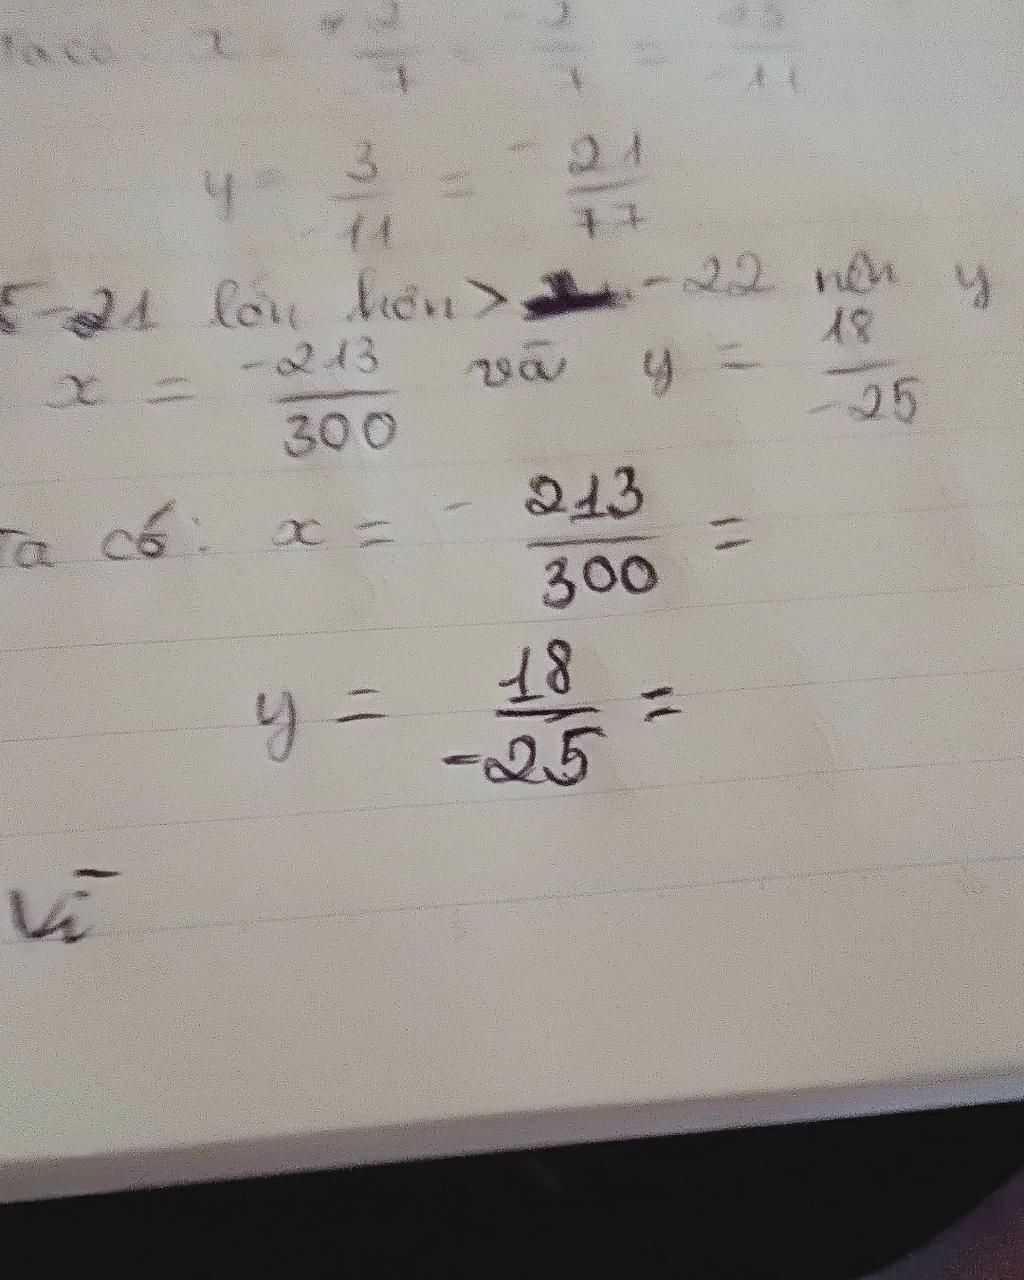 x = -2/7 = 2/7 = /-11
y = 3/-11 = - 21/77
-21 lớn hơn > -22 nên y
x = -213/300 và y = 18/-25
Ta có: x = - 213/300 =
y = 18/-25 =
Vì